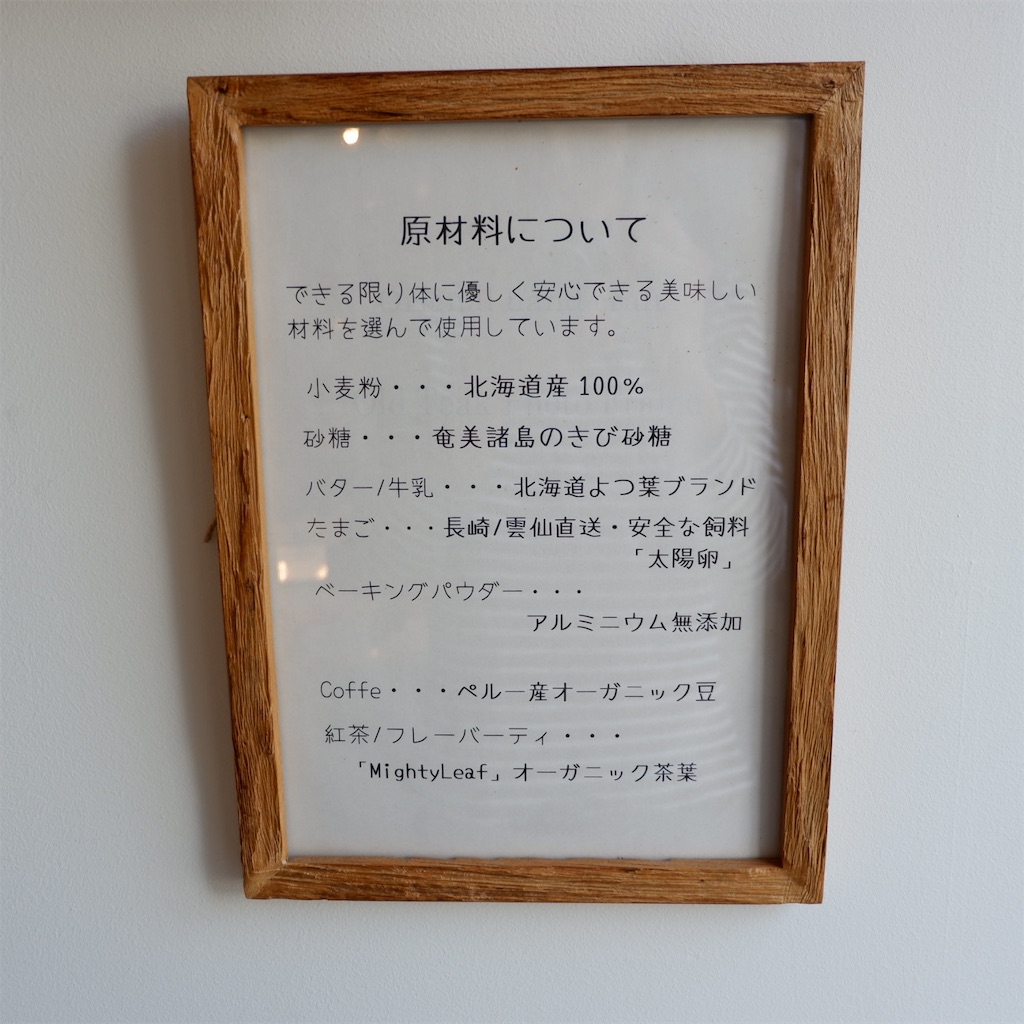 原材料について
できる限り体に優しく安心できる美味しい
材料を選んで使用しています。
小麦粉・・・北海道産100%
砂糖・・・奄美諸島のきび砂糖
バター/牛乳・・・北海道よつ葉ブランド
たまご・・・長崎/雲仙直送・安全な飼料
「太陽卵」
ベーキングパウダー・・・
アルミニウム無添加
Coffe・・・ペルー産オーガニック豆
紅茶/フレーバーティ・・・
「MightyLeaf」オーガニック茶葉